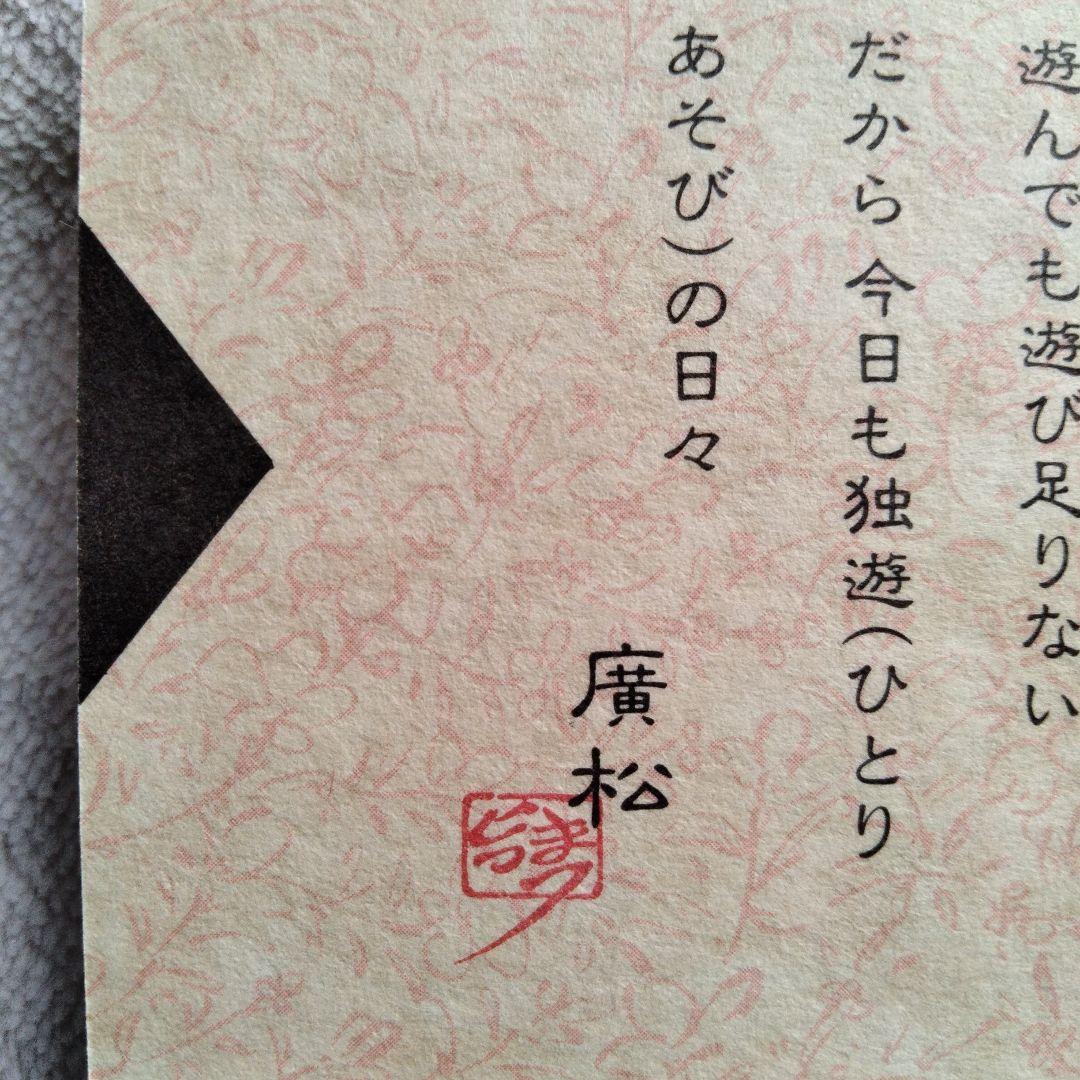 遊んでも遊び足りない
だから今日も独遊(ひとり
あそび)の日々
廣松